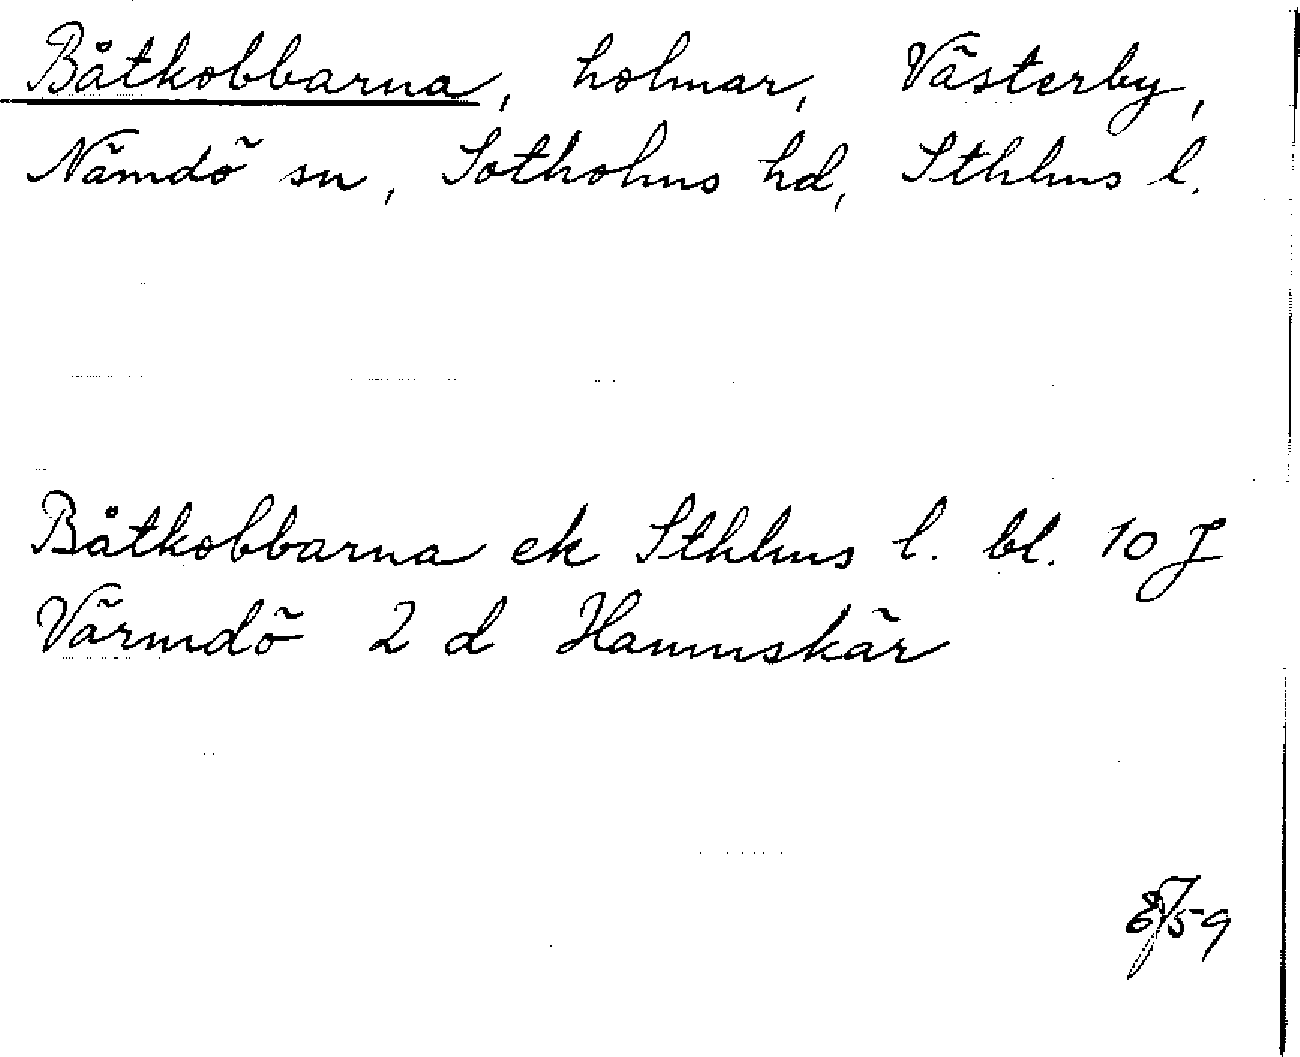 Båtkobbarna, holmar, Västerby,
Nämdö sn, Sotholms hd, Sthlms l.
Båtkobbarna ek Sthlms l. bl. 10 J
Värmdö 2 d Hamnskär